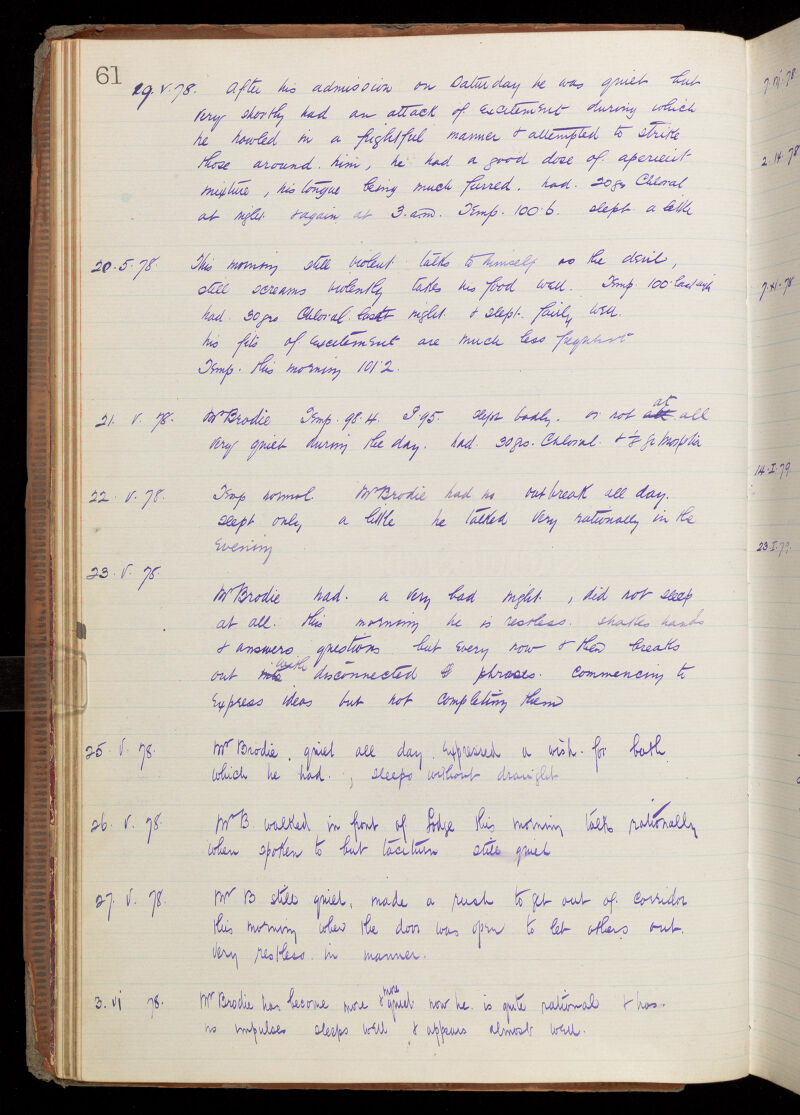 61
19. V. 78. After his admission on Saturday he was quiet but
very shortly had an attack of excitement during which
he howled in a frightful manner & attempted to strike
those around him, he had a good dose of aperient
mixture, his tongue being much furred. had 20grs Chloral
at night & again at 3. a.m. Temp. 100.6. slept a little
20.5.78. This morning still violent talks to himself as the devil,
still screams violently takes his food well. Temp 100 last night
had 30grs Chloral last night & slept fairly well.
his fits of excitement are much less frequent
Temp. this morning 101.2.
21. V. 78. Mr Brodie Temp. 98.4. P 95. slept badly. or not at all
very quiet during the day. had 30grs. Chloral. & ½ gr Morphia
22. V. 78. Temp normal Mr Brodie had no outbreak all day.
slept only a little he talked very rationally in the
Evening
23. V. 78.
Mr Brodie had a very bad night, did not sleep
at all. this morning he is restless. shakes hands
& answers questions but every now & then breaks
out with disconnected phrases. commencing to
express ideas but not completing them
25. V. 78. Mr Brodie. quiet all day expressed a wish for bath
which he had., sleeps without draught
26. V. 78. Mr B. walked in front of Lodge this morning talks rationally
when spoken to but taciturn still quiet
27. V. 78. Mr B still quiet, made a rush to get out of corridor
this morning when the door was open to let others out.
very restless in manner.
3. vi 78. Mr Brodie has become more & more quiet now he is quite rational & has
no impulses sleeps well & appears almost well.
14.I.79
23.I.79.